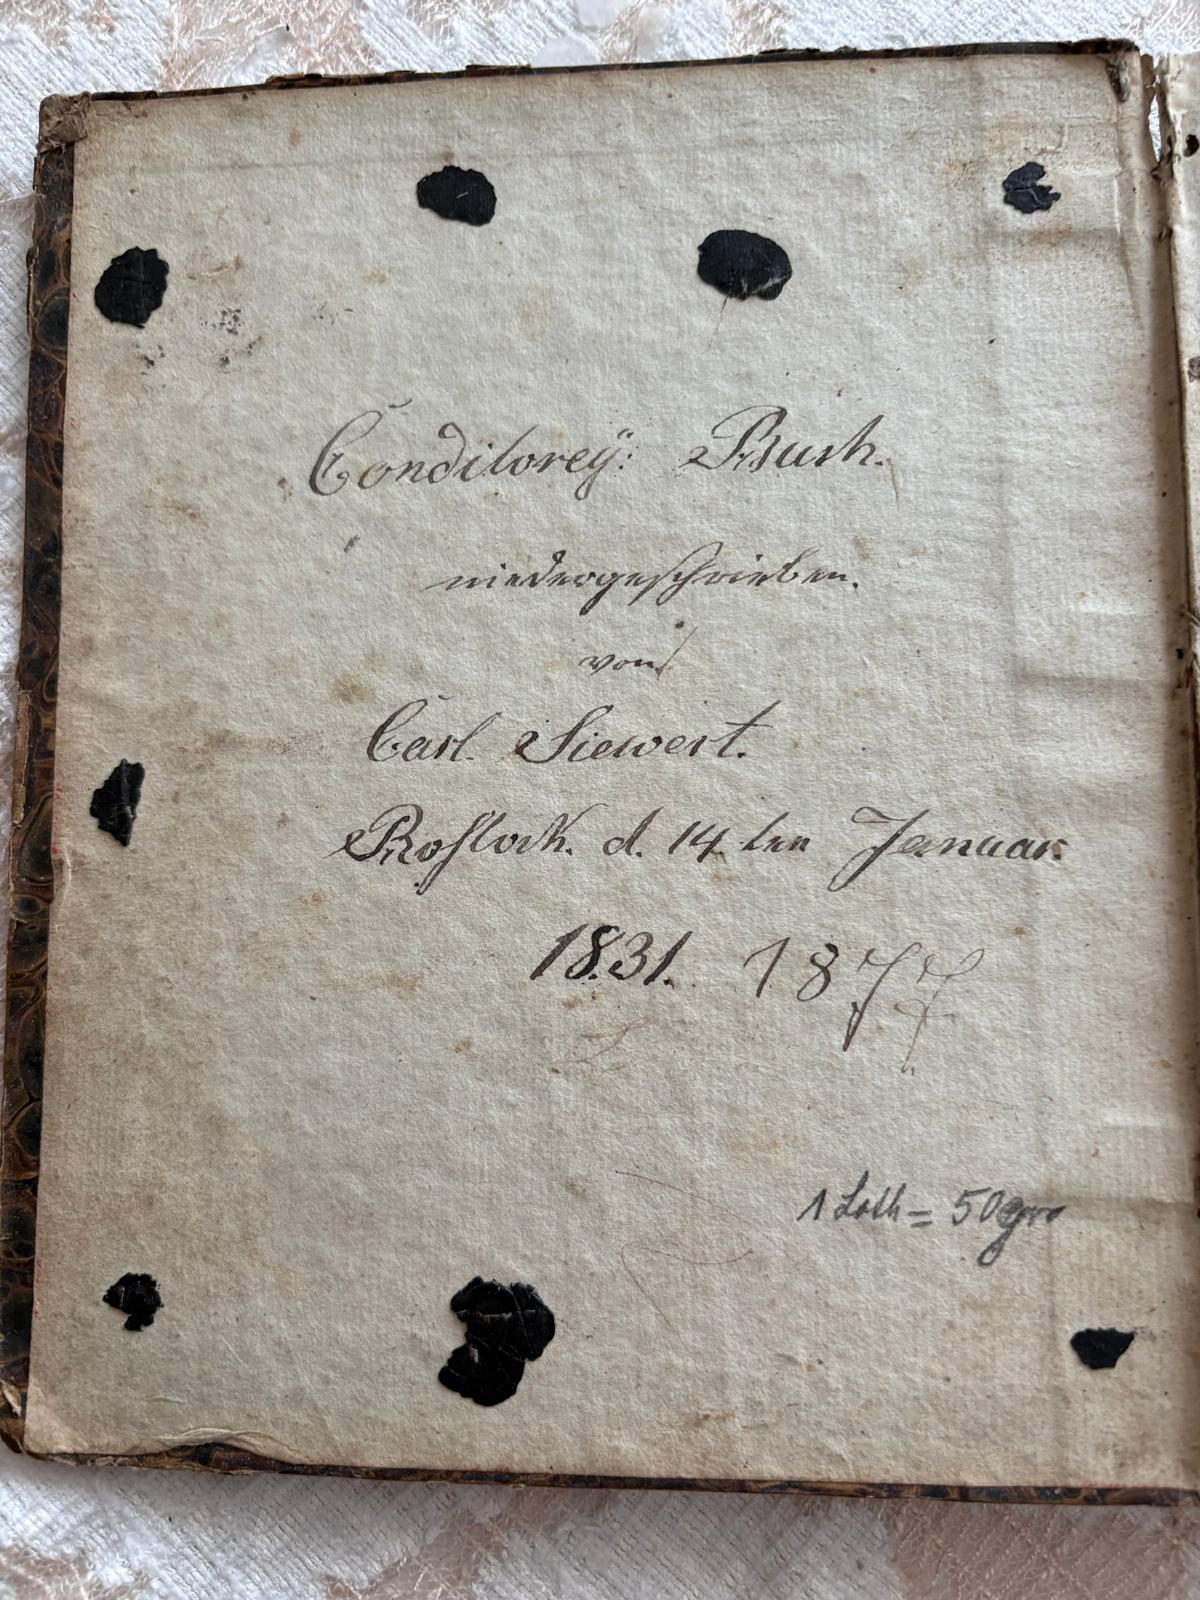 Conditorey: Buch.
niedergeschrieben.
von
Carl Siewert.
Rostock. d. 14 ten Januar.
1831. 1877
1 Loth = 50 gr